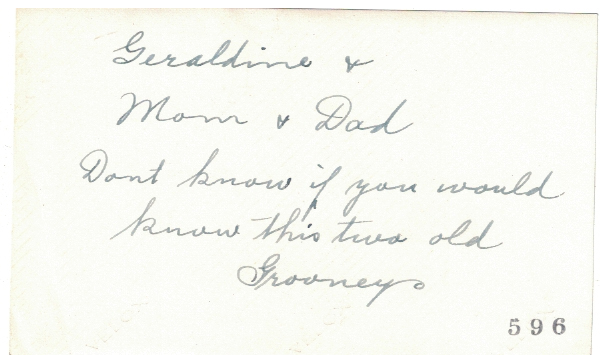 Geraldine &
Mom & Dad
Dont know if you would
know this two old
Grooneys
596